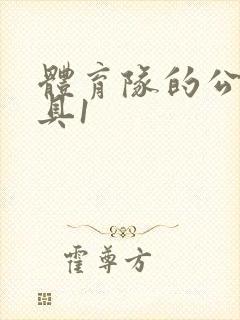 體育隊的公
具1
霍尊方